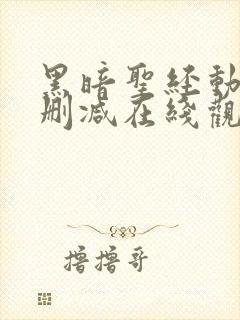 黑暗聖經動
刪減在綫觀
擼擼哥